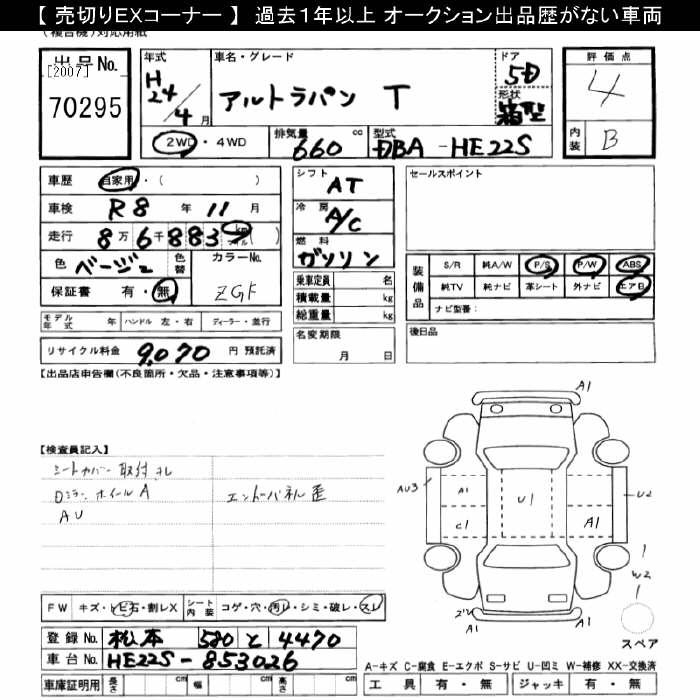 【 売切りEXコーナー 】 過去1年以上 オークション出品歴がない車両
(複合機)対応用紙
出品No.
[2007]
70295
年式
H24/4月
車名・グレード
アルトラパン T
ドア
5D
形状
箱型
評価点
4
内装
B
2WD・4WD
排気量
660
cc
型式
DBA -HE22S
車歴 自家用・( )
車検 R8 年 11 月
走行 8万6千883 km マイル ( )
色 ベージュ
色替
カラーNo.
ZGF
保証書 有・無
シフト
AT
冷房
A/C
燃料
ガソリン
乗車定員 名
積載量 kg
総重量 kg
名変期限
月 日
セールスポイント
装備品
S/R 純A/W P/S P/W ABS
純TV 純ナビ 革シート 外ナビ エアB
ナビ型番:
後日品
モデル年式 年 ハンドル 左・右 ディーラー・並行
リサイクル料金 9,070 円 預託済
【出品店申告欄(不良箇所・欠品・注意事項等)】
【検査員記入】
シートカバー取付 スレ
Dミラー ホイールA
AU
エンドパネル歪
A1
AU3
A1
C1
U1
A1
U2
W2
A1
A1
スペア
FW キズ・トビ石・割レX シート内装 コゲ・穴・汚レ・シミ・破レ・スレ
登録No. 松本 580 と 4470
車台No. HE22S-853026
車庫証明用 長さ cm 幅 cm 高さ cm
A-キズ C-腐食 E-エクボ S-サビ U-凹ミ W-補修 XX-交換済
工具 有・無 ジャッキ 有・無